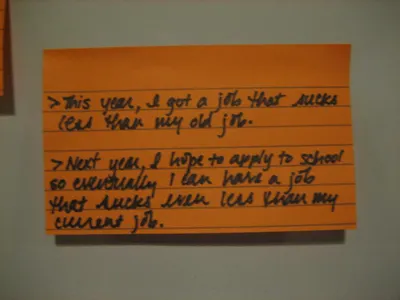 > This year, I got a job that sucks
less than my old job.
> Next year, I hope to apply to school
so eventually I can have a job
that sucks even less than my
current job.